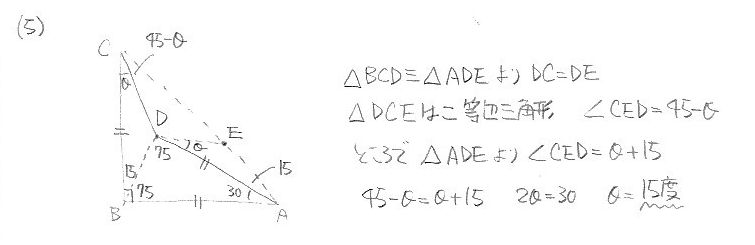 (5)
C
45-θ
θ
D
E
θ
75
15
15
75
30
B
A
△BCD≡△ADEよりDC=DE
△DCEは二等辺三角形 ∠CED=45-θ
ところで △ADEより∠CED=θ+15
45-θ=θ+15 2θ=30 θ=15度